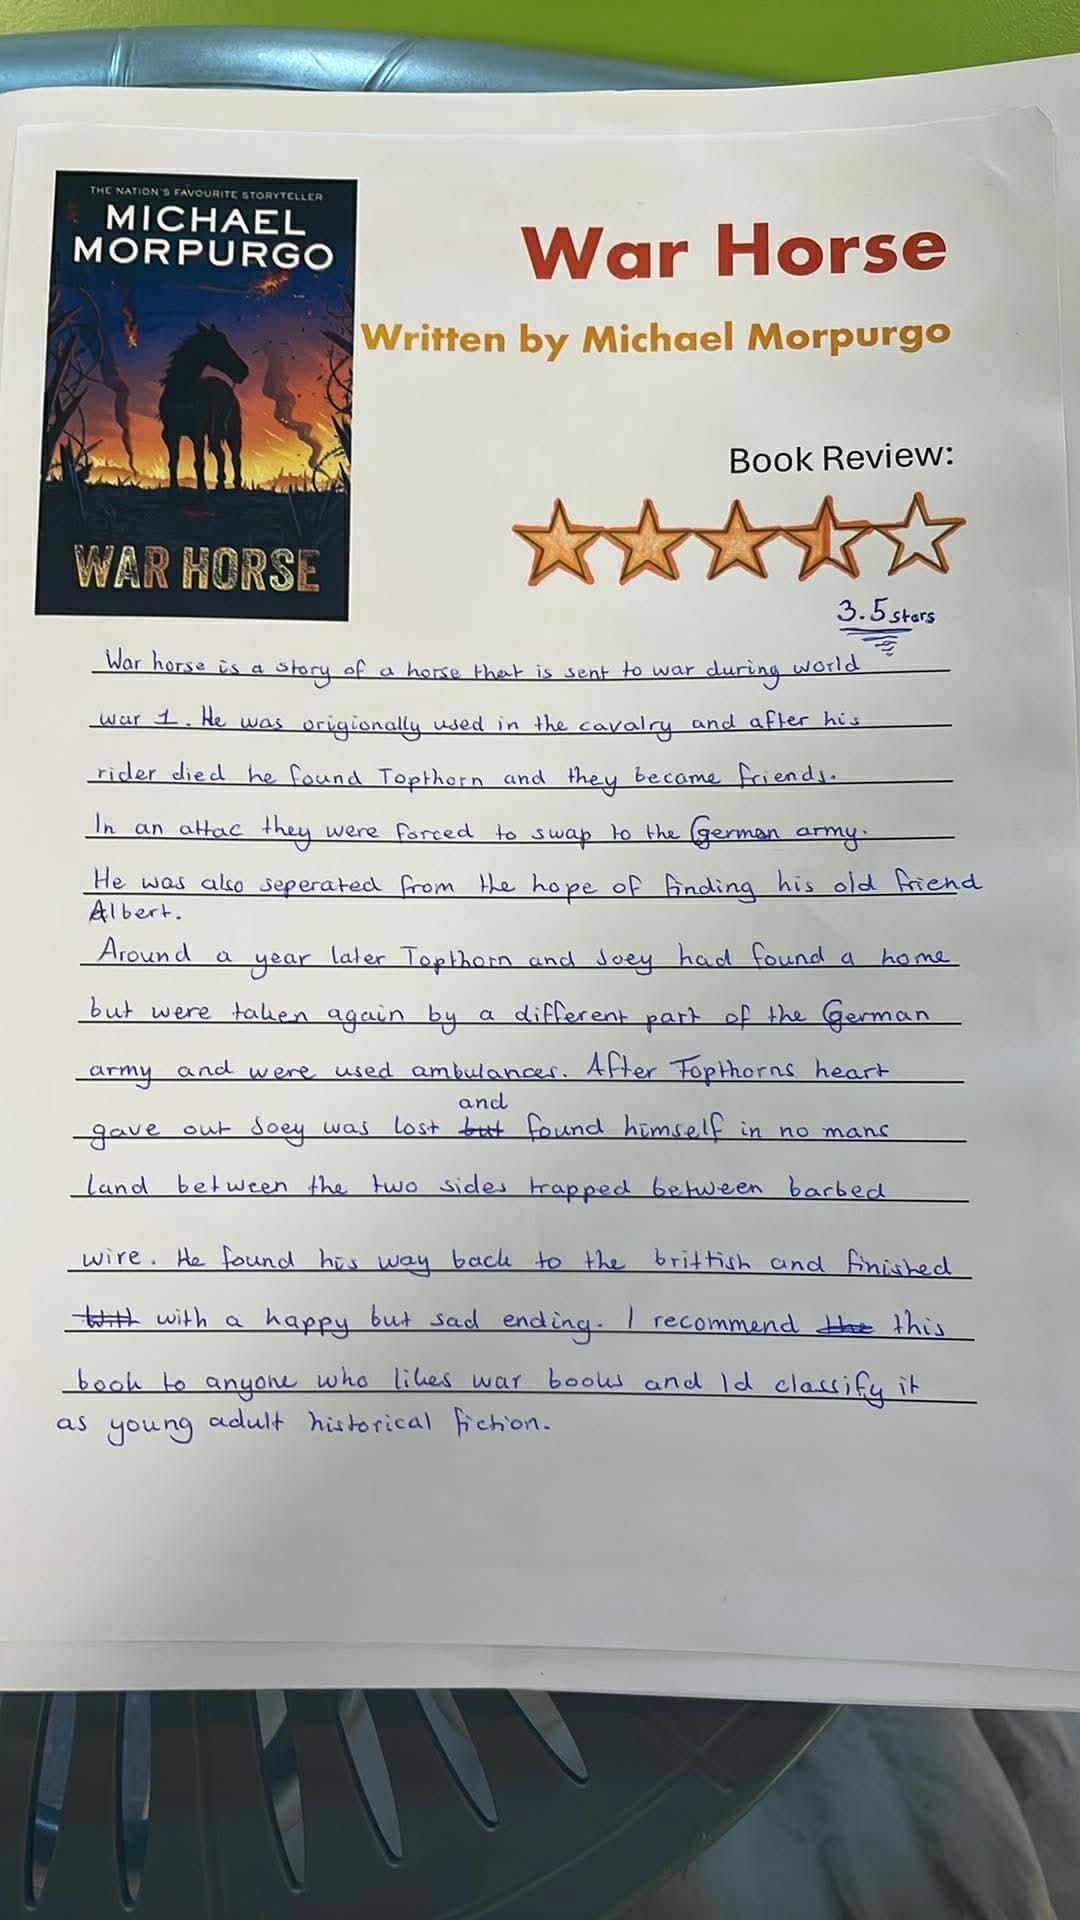 THE NATION'S FAVOURITE STORYTELLER
MICHAEL
MORPURGO
WAR HORSE
War Horse
Written by Michael Morpurgo
Book Review:
3.5 stars
War horse is a story of a horse that is sent to war during world
war 1. He was origionally used in the cavalry and after his
rider died he found Topthorn and they became friends.
In an attac they were forced to swap to the German army.
He was also seperated from the hope of finding his old friend
Albert.
Around a year later Topthorn and Joey had found a home
but were taken again by a different part of the German
army and were used ambulances. After Topthorns heart
and
gave out Joey was lost but found himself in no mans
land between the two sides trapped between barbed
wire. He found his way back to the brittish and finished
with with a happy but sad ending. I recommend the this
book to anyone who likes war books and Id classify it
as young adult historical fiction.